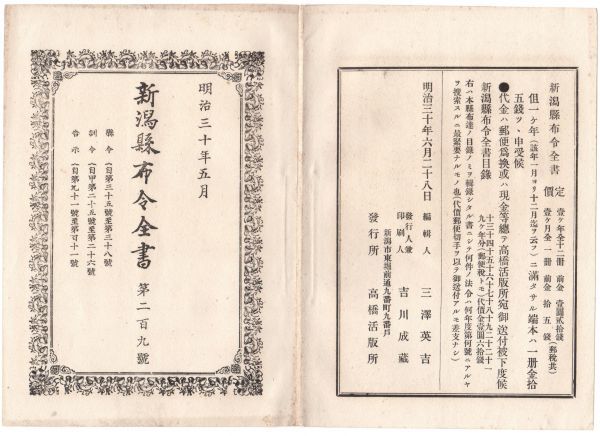 新潟縣布令全書
定價
壹ケ年全十二冊 前金 壹圓貳拾錢(郵稅共)
壹ケ月全一冊 前金 拾五錢
但一ケ年(該年一月ヨリ十二月迄ヲ云フ)ニ滿タサル端本ハ一冊金拾
五錢ツヽ申受候
●代金ハ郵便爲換或ハ現金等總テ高橋活版所宛御送付被下度候
新潟縣布令全書目錄
十三十四十五十六十七十八十九二十二十一
九ケ年分(郵便稅トモ)代價金壹圓六拾錢
右ハ本縣布達ノ目錄ノミヲ輯錄シタル書ニシテ何件ノ法令ハ何年度第何號ニアルヤ
ヲ搜索スルニ最緊要ナルモノ也(代價郵便切手ヲ以テ御送付アルモ差支ナシ)
明治三十年六月二十八日
編輯人 三澤英吉
發行人兼印刷人 吉川成藏
新潟市東堀前通九番町九番戶
發行所 高橋活版所
明治三十年五月
新潟縣布令全書 第二百九號
縣令(自第三十五號至第三十八號)
訓令(自甲第二十五號至第二十六號)
告示(自第九十一號至第百十一號)